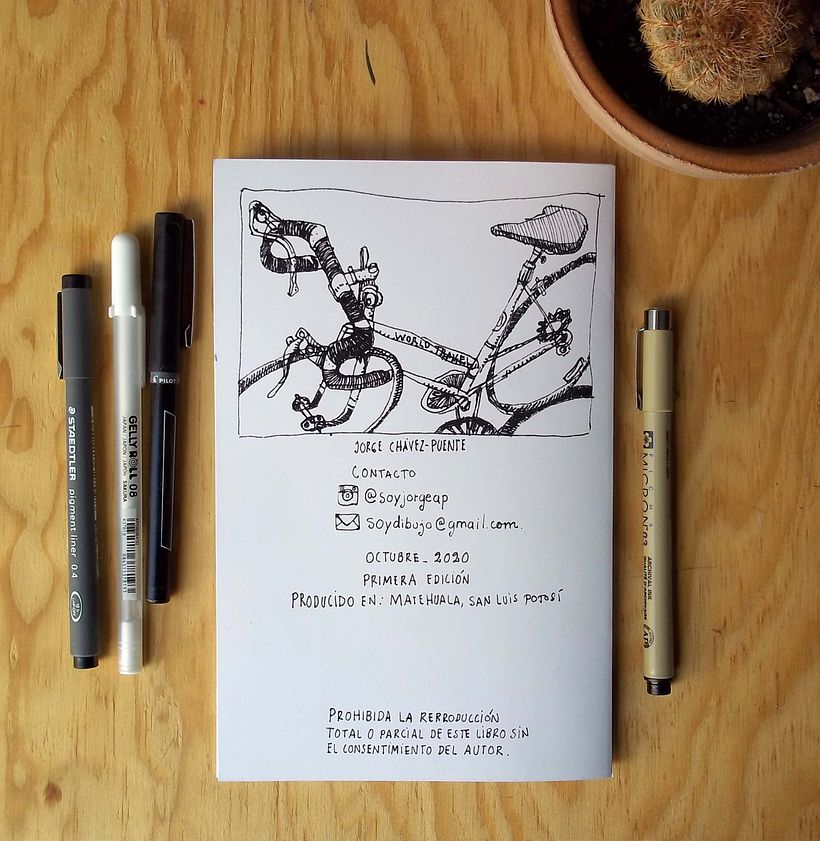 WORLD TRAVEL
JORGE CHÁVEZ-PUENTE
CONTACTO
@soyjorgeap
soydibujo@gmail.com.
OCTUBRE_2020
PRIMERA EDICIÓN
PRODUCIDO EN: MATEHUALA, SAN LUIS POTOSÍ
PROHIBIDA LA RERRODUCCIÓN
TOTAL O PARCIAL DE ESTE LIBRO SIN
EL CONSENTIMIENTO DEL AUTOR.
STAEDTLER
pigment liner 0.4
GELLY ROLL 08
JAPAN / JAPON / JAPÓN SAKURA
PILOT
PIGMA
MICRON 03
ARCHIVAL INK